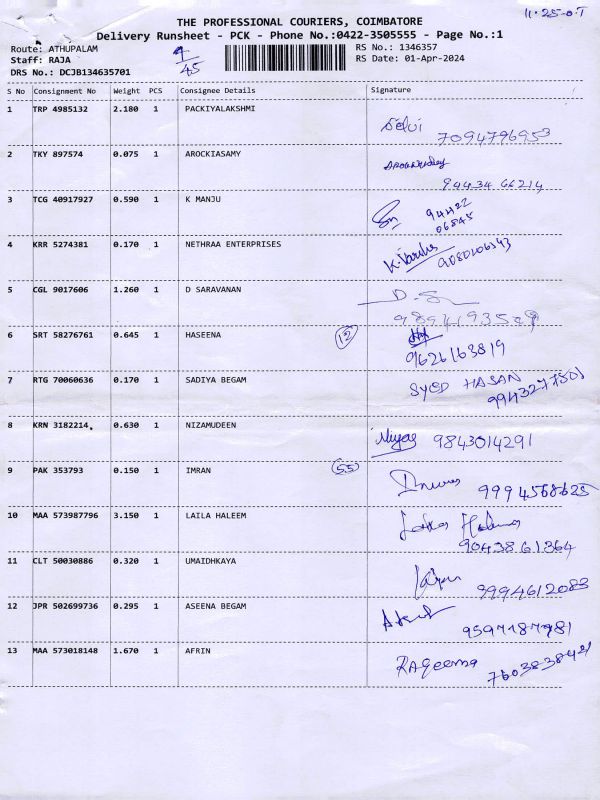 11-25-0.T
THE PROFESSIONAL COURIERS, COIMBATORE
Delivery Runsheet - PCK - Phone No.:0422-3505555 - Page No.:1
Route: ATHUPALAM
RS No.: 1346357
Staff: RAJA
RS Date: 01-Apr-2024
DRS No.: DCJB134635701
45
S No Consignment No Weight PCS Consignee Details Signature
1 TRP 4985132 2.180 1 PACKIYALAKSHMI
Selvi
7094796953
2 TKY 897574 0.075 1 AROCKIASAMY
94434 66214
3 TCG 40917927 0.590 1 K MANJU
94422
06845
4 KRR 5274381 0.170 1 NETHRAA ENTERPRISES
5 CGL 9017606 1.260 1 D SARAVANAN
D. S
6 SRT 58276761 0.645 1 HASEENA 12
9626163819
7 RTG 70060636 0.170 1 SADIYA BEGAM
SYED HASAN
8 KRN 3182214 0.630 1 NIZAMUDEEN
Niyas 9843014291
9 PAK 353793 0.150 1 IMRAN 55
9994568625
10 MAA 573987796 3.150 1 LAILA HALEEM
9043861364
11 CLT 50030886 0.320 1 UMAIDHKAYA
9994612083
12 JPR 502699736 0.295 1 ASEENA BEGAM
9597187981
13 MAA 573018148 1.670 1 AFRIN
RAQeema